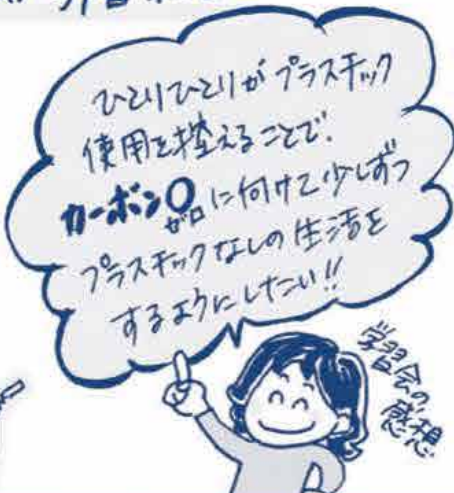 ひとりひとりがプラスチック
使用を控えることで、
カーボン0に向けて少しずつ
ゼロ
プラスチックなしの生活を
するようにしたい!!
学習会の
感想